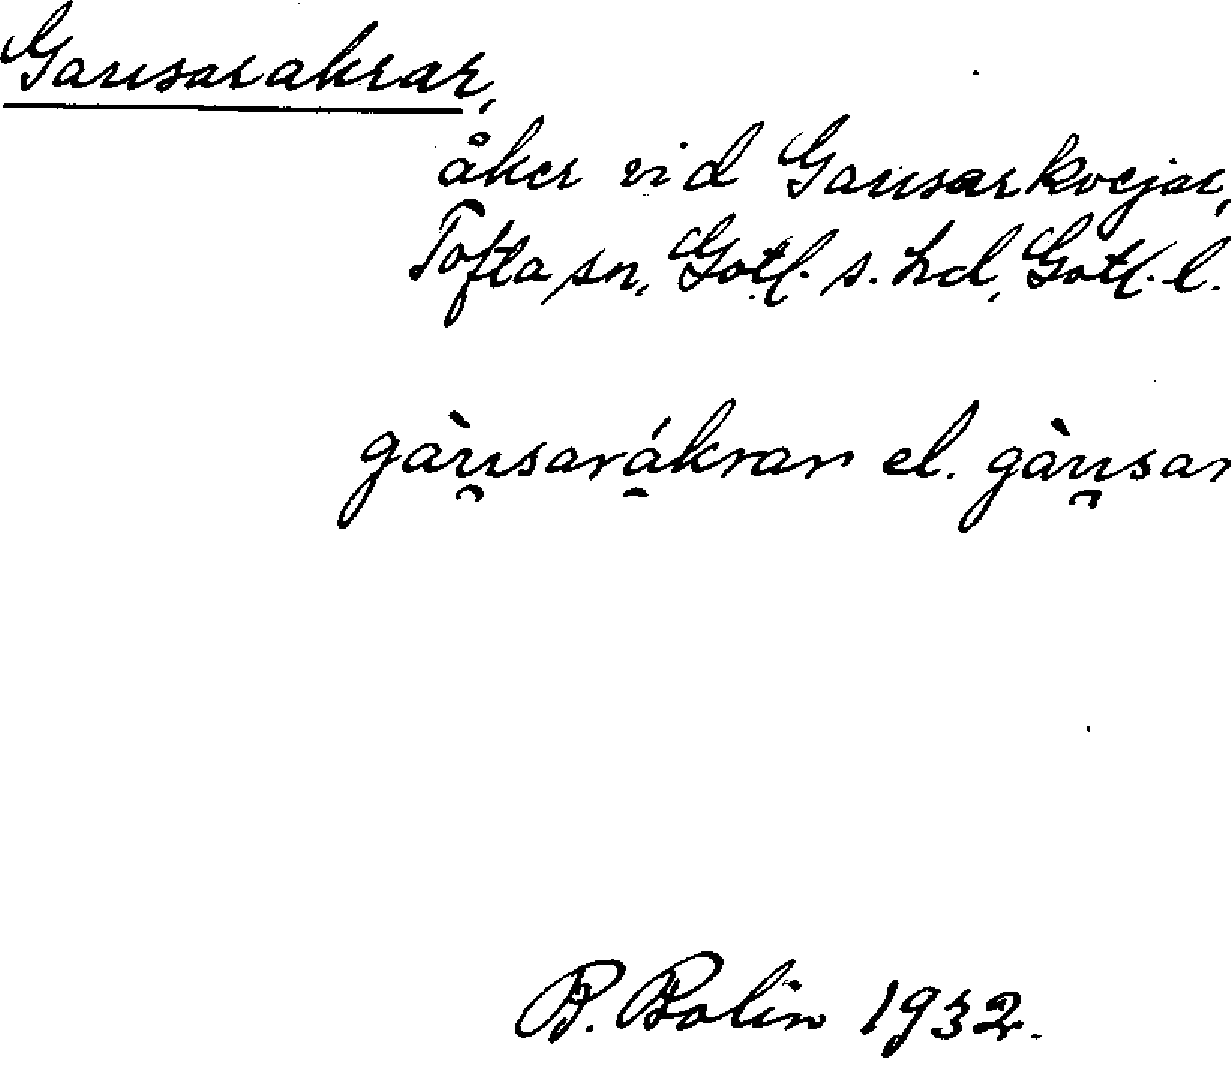 Gausarakrar,
åker vid Gausarkvejar,
Tofta sn, Gotl. s. hd, Gotl. l.
gàu̯sarákran el. gàu̯sar
B. Bolin 1932.